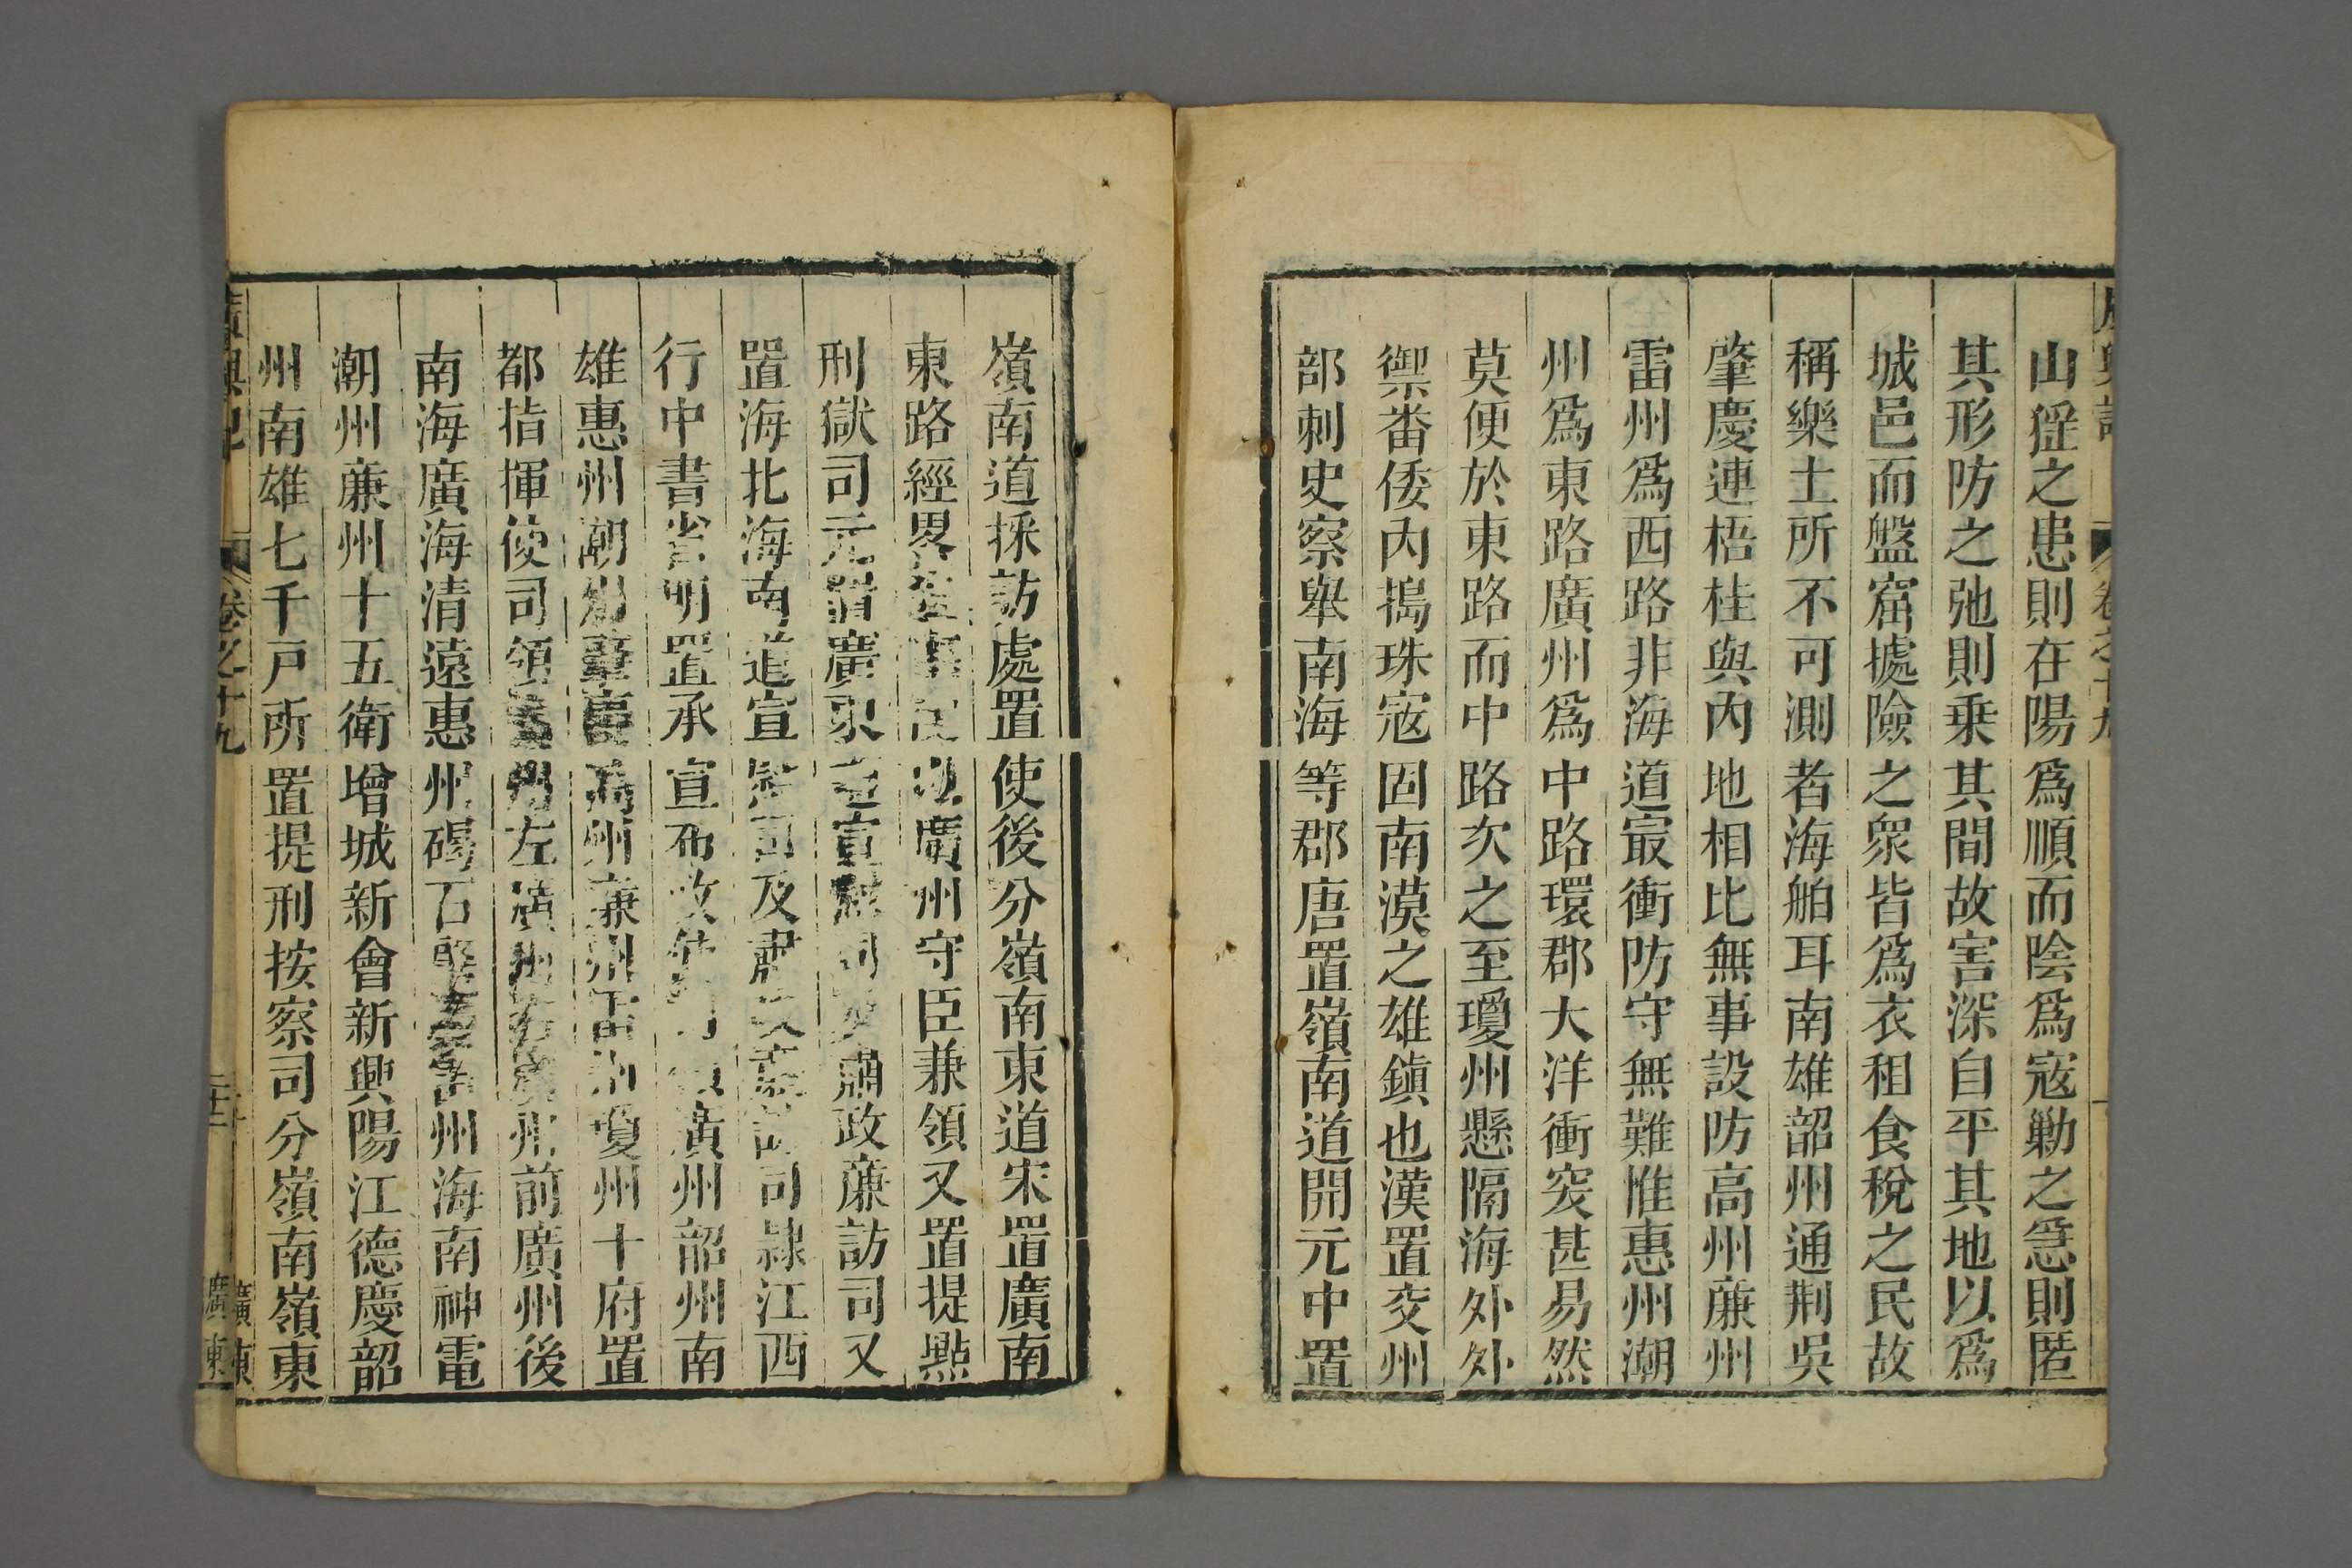 山猺之患則在陽爲順而陰爲寇勦之急則匿
其形防之弛則乗其間故害深自平其地以爲
城邑而盤窟㨿險之衆皆爲衣租食稅之民故
稱樂土所不可測者海舶耳南雄韶州通荆吳
肇慶連梧桂與內地相比無事設防高州亷州
雷州爲西路非海道㝡衝防守無難惟惠州潮
州爲東路廣州爲中路環郡大洋衝突甚易然
莫便於東路而中路次之至瓊州懸隔海外外
禦畨倭內搗珠寇固南漠之雄鎮也漢置交州
部刺史察舉南海等郡唐置嶺南道開元中置
嶺南道採訪處置使後分嶺南東道宋置廣南
東路經畧廣州守臣兼領又置提㸃
刑獄司元置廣東道宣慰司肅政亷訪司又
置海北海南道宣慰司及肅司隷江西
行中書省明置承宣布政使司領廣州韶州南
雄惠州潮州肇慶高州亷州雷州瓊州十府置
都指揮使司領廣州左廣州右廣州前廣州後
南海廣海清遠惠州碣石雷州海南神電
潮州亷州十五衛增城新會新興陽江德慶韶
州南雄七千戶所置提刑按察司分嶺南嶺東
廣輿記
卷之十九
廣東